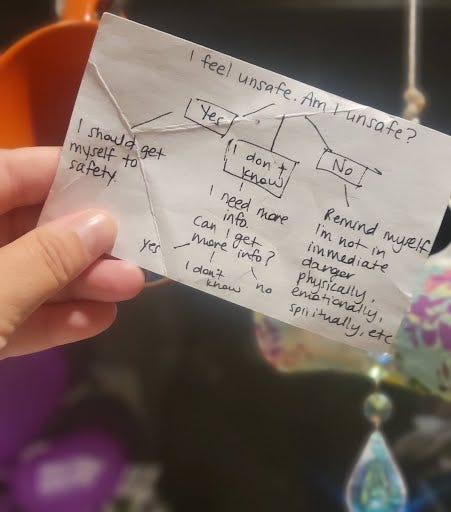 I feel unsafe. Am I unsafe?
Yes
I should get
myself to
safety.
I don't
know
I need more
info.
Can I get
more info?
yes
I don't
know
no
No
Remind myself
I'm not in
immediate
danger
physically,
emotionally,
spiritually, etc